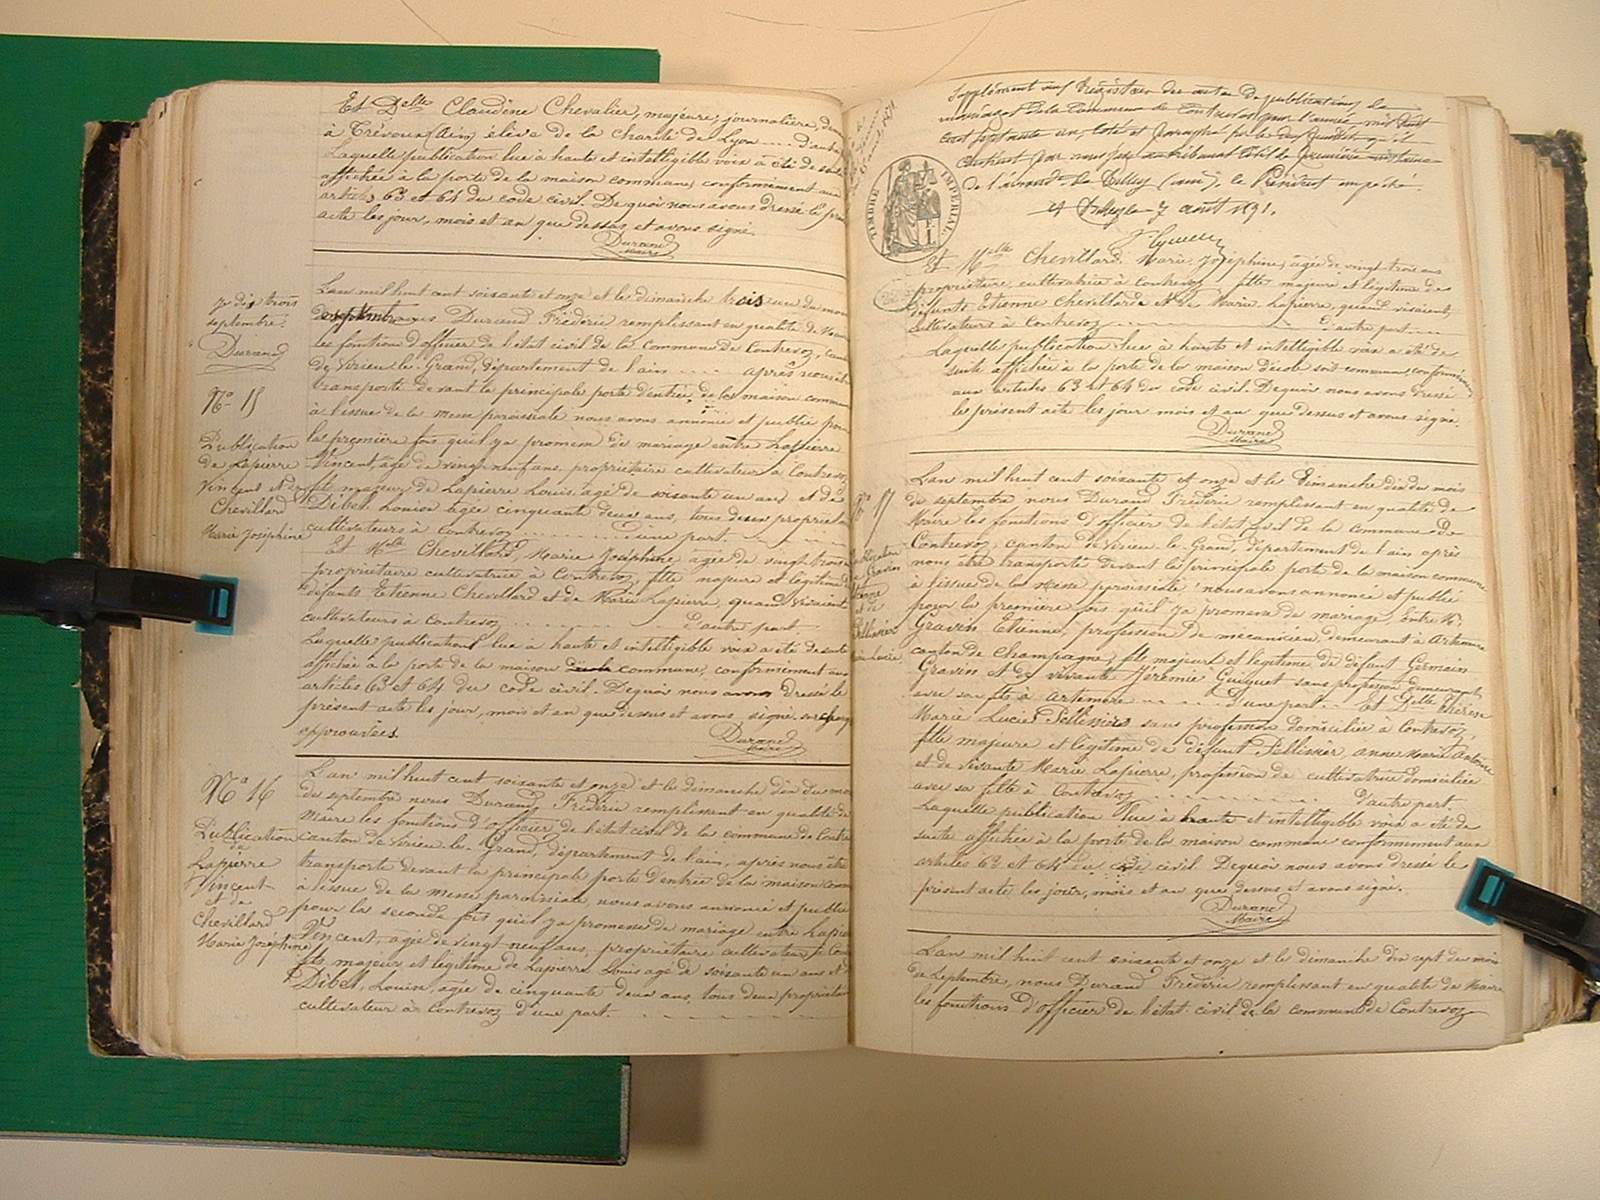 Et Delle Claudine Chevalier, majeure, journalière, dem
à Trévoux (Ain) élève de la charité de Lyon .... D'autre
Laquelle publication lue à haute et intelligible voix a été de suite
affichée à la porte de la maison commune, conformément aux
articles 63 et 64 du code civil. De quoi nous avons dressé le prés
acte les jour, mois et an que dessus et avons signé.
Durand
Maire
Je dis trois
septembre.
Durand
No 15
Publication
de Lapierre
Vincent et de
Chevillard
Marie Joséphine
L'an mil huit cent soixante et onze et le dimanche trois du mois
de septembre nous Durand Fréderic remplissant en qualité de Maire
les fonctions d'officier de l'état civil de la commune de Contrevoz, canton
de Virieu-le-Grand, département de l'ain .... après nous être
transporté devant la principale porte d'entrée de la maison commune
à l'issue de la messe paroissiale nous avons annoncé et publié pour
la première fois qu'il y a promesse de mariage entre Lapierre
Vincent, âgé de vingt neuf ans, propriétaire cultivateur à Contrevoz
fils majeur de Lapierre Louis âgé de soixante un ans et de
Dibet Louise âgée cinquante deux ans, tous deux propriétai
cultivateurs à Contrevoz .......... D'une part.
Et Melle Chevillard Marie Joséphine âgée de vingt trois a
propriétaire cultivatrice à Contrevoz, fille majeure et légitime d
défunts Etienne Chevillard et de Marie Lapierre, quand vivaient
cultivateurs à Contrevoz .......... D'autre part.
Laquelle publication lue à haute et intelligible voix a été de suite
affichée à la porte de la maison commune, conformément aux
articles 63 et 64 du code civil. De quoi nous avons dressé le
présent acte les jour, mois et an que dessus et avons signé. surcharge
approuvées
Durand
Maire
No 16
Publication
de
Lapierre
Vincent
et de
Chevillard
Marie Joséphine
L'an mil huit cent soixante et onze et le dimanche dix du mois
de septembre nous Durand Fréderic remplissant en qualité de
Maire les fonctions d'officier de l'état civil de la commune de Contre
canton de Virieu-le-Grand, département de l'ain, après nous être
transporté devant la principale porte d'entrée de la maison comm
à l'issue de la messe paroissiale, nous avons annoncé et publié
pour la seconde fois qu'il y a promesse de mariage entre Lapier
Vincent, âgé de vingt neuf ans, propriétaire cultivateur à Con
fils majeur et légitime de Lapierre Louis âgé de soixante un ans et d
Dibet, Louise, âgée de cinquante deux ans, tous deux propriétair
cultivateur à Contrevoz d'une part. . . . . . .
Supplément au Régistre des actes de publications de
mariages de la commune de Contrevoz pour l'année mil huit
cent soixante onze, coté et paraphé
par nous juge au tribunal civil de première instance
de l'arrond. de Belley (ain), le Président empêché.
Belley le 7 août 1871.
TIMBRE IMPERIAL.
Et Melle Chevillard Marie Joséphine, âgée de vingt trois ans
propriétaire, cultivatrice à Contrevoz, fille majeure et légitime de
défunts Etienne Chevillard et de Marie Lapierre, quand vivaient,
cultivateurs à Contrevoz .......... D'autre part....
Laquelle publication lue à haute et intelligible voix a été de
suite affichée à la porte de la maison d'école soit commune, conformément
aux articles 63 et 64 du code civil. De quoi nous avons dressé
le présent acte les jour mois et an que dessus et avons signé.
Durand
Maire
No 17
Publication
Gravin
Etienne
et de
Pellissier
Marie Lucie
L'an mil huit cent soixante et onze et le Dimanche dix du mois
de septembre nous Durand Fréderic remplissant en qualité de
Maire les fonctions d'officier de l'état civil de la commune de
Contrevoz, canton de Virieu-le-Grand, département de l'ain après
nous être transporté devant la principale porte de la maison commune
à l'issue de la Messe paroissiale nous avons annoncé et publié
pour la première fois qu'il y a promesse de mariage, Entre Mr
Gravin Etienne, profession de mécanicien demeurant à Artemare
canton de Champagne, fils majeur et légitime de défunt Germain
Gravin et de vivante Jéremie Guiguet sans profession demeurant
avec son fils à Artemare .... D'une part. Et Delle Thérèse
Marie Lucie Pellissier sans profession domiciliée à Contrevoz,
fille majeure et légitime de défunt Pellissier anne Marie Antoine
et de vivante Marie Lapierre, profession de cultivatrice domiciliée
avec sa fille à Contrevoz .......... d'autre part.
Laquelle publication lue à haute et intelligible voix a été de
suite affichée à la porte de la maison commune conformément aux
articles 63 et 64 du code civil De quoi nous avons dressé le
présent acte les jour, mois et an que dessus et avons signé.
Durand
Maire
L'an mil huit cent soixante et onze et le dimanche dix sept du mois
de Septembre, nous Durand Fréderic remplissant en qualité de Maire
les fonctions d'officier de l'état civil de la commune de Contrevoz